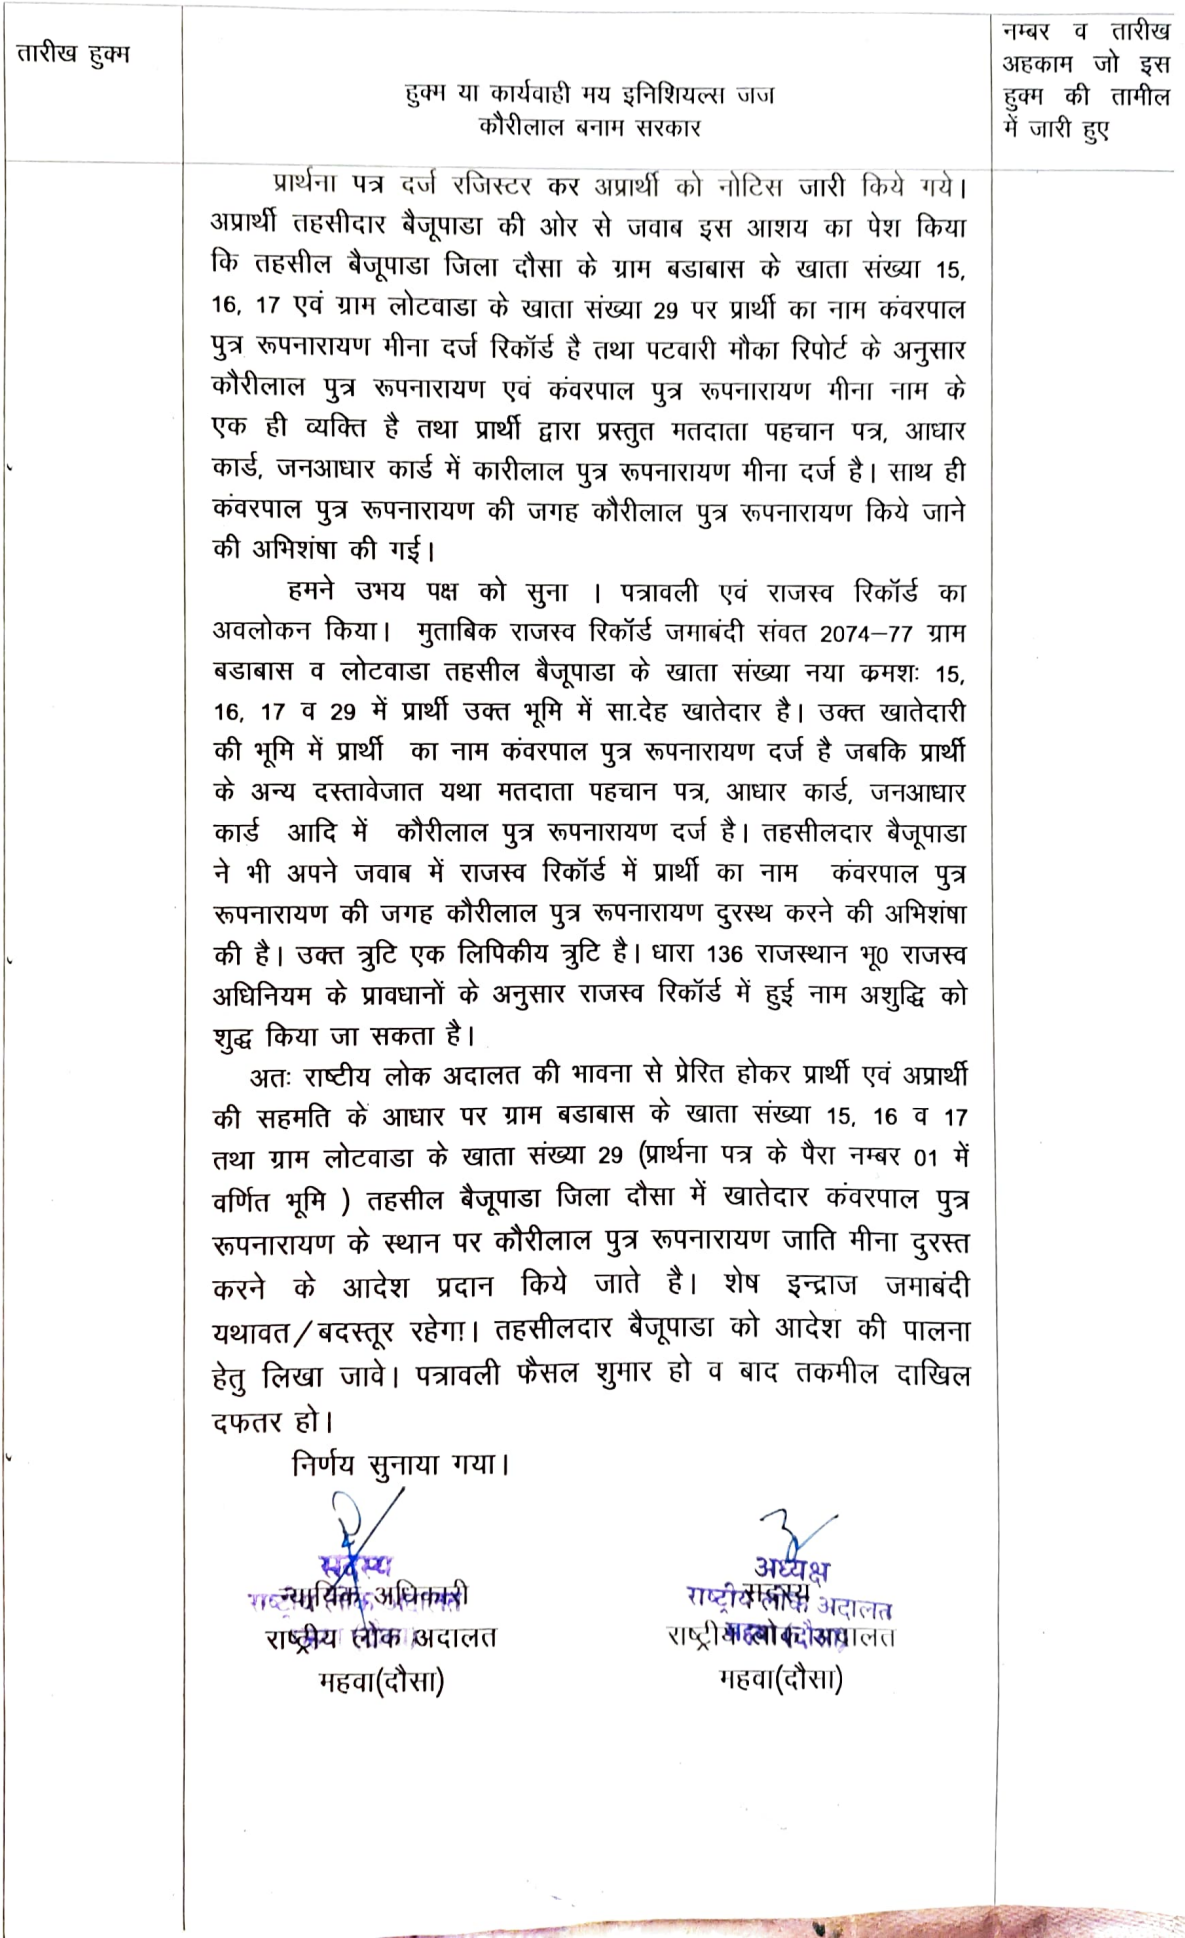 तारीख हुक्म
हुक्म या कार्यवाही मय इनिशियल्स जज
कौरीलाल बनाम सरकार
नम्बर व तारीख
अहकाम जो इस
हुक्म की तामील
में जारी हुए
प्रार्थना पत्र दर्ज रजिस्टर कर अप्रार्थी को नोटिस जारी किये गये।
अप्रार्थी तहसीदार बैजूपाडा की ओर से जवाब इस आशय का पेश किया
कि तहसील बैजूपाडा जिला दौसा के ग्राम बडाबास के खाता संख्या 15,
16, 17 एवं ग्राम लोटवाडा के खाता संख्या 29 पर प्रार्थी का नाम कंवरपाल
पुत्र रूपनारायण मीना दर्ज रिकॉर्ड है तथा पटवारी मौका रिपोर्ट के अनुसार
कौरीलाल पुत्र रूपनारायण एवं कंवरपाल पुत्र रूपनारायण मीना नाम के
एक ही व्यक्ति है तथा प्रार्थी द्वारा प्रस्तुत मतदाता पहचान पत्र, आधार
कार्ड, जनआधार कार्ड में कारीलाल पुत्र रूपनारायण मीना दर्ज है। साथ ही
कंवरपाल पुत्र रूपनारायण की जगह कौरीलाल पुत्र रूपनारायण किये जाने
की अभिशंषा की गई।
हमने उभय पक्ष को सुना । पत्रावली एवं राजस्व रिकॉर्ड का
अवलोकन किया। मुताबिक राजस्व रिकॉर्ड जमाबंदी संवत 2074–77 ग्राम
बडाबास व लोटवाडा तहसील बैजूपाडा के खाता संख्या नया क्रमशः 15,
16, 17 व 29 में प्रार्थी उक्त भूमि में सा.देह खातेदार है। उक्त खातेदारी
की भूमि में प्रार्थी का नाम कंवरपाल पुत्र रूपनारायण दर्ज है जबकि प्रार्थी
के अन्य दस्तावेजात यथा मतदाता पहचान पत्र, आधार कार्ड, जनआधार
कार्ड आदि में कौरीलाल पुत्र रूपनारायण दर्ज है। तहसीलदार बैजूपाडा
ने भी अपने जवाब में राजस्व रिकॉर्ड में प्रार्थी का नाम कंवरपाल पुत्र
रूपनारायण की जगह कौरीलाल पुत्र रूपनारायण दुरस्थ करने की अभिशंषा
की है। उक्त त्रुटि एक लिपिकीय त्रुटि है। धारा 136 राजस्थान भू0 राजस्व
अधिनियम के प्रावधानों के अनुसार राजस्व रिकॉर्ड में हुई नाम अशुद्धि को
शुद्ध किया जा सकता है।
अतः राष्टीय लोक अदालत की भावना से प्रेरित होकर प्रार्थी एवं अप्रार्थी
की सहमति के आधार पर ग्राम बडाबास के खाता संख्या 15, 16 व 17
तथा ग्राम लोटवाडा के खाता संख्या 29 (प्रार्थना पत्र के पैरा नम्बर 01 में
वर्णित भूमि ) तहसील बैजूपाडा जिला दौसा में खातेदार कंवरपाल पुत्र
रूपनारायण के स्थान पर कौरीलाल पुत्र रूपनारायण जाति मीना दुरस्त
करने के आदेश प्रदान किये जाते है। शेष इन्द्राज जमाबंदी
यथावत/बदस्तूर रहेगा। तहसीलदार बैजूपाडा को आदेश की पालना
हेतु लिखा जावे। पत्रावली फैसल शुमार हो व बाद तकमील दाखिल
दफतर हो।
निर्णय सुनाया गया।
सदस्य
न्यायिक अधिकारी
राष्ट्रीय लोक अदालत
महवा(दौसा)
अध्यक्ष
सदस्य
राष्ट्रीय लोक अदालत
राष्ट्रीय लोक अदालत
महवा(दौसा)